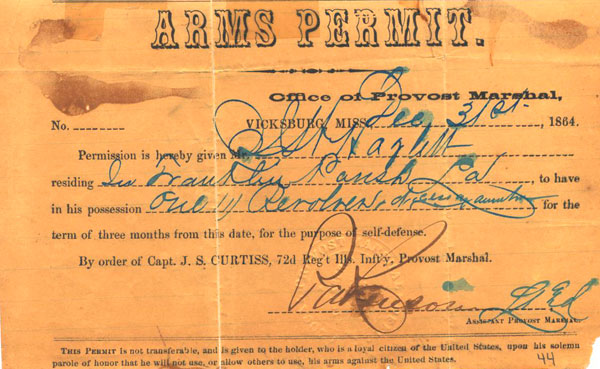 ARMS PERMIT.
Office of Provost Marshal,
No. VICKSBURG, MISS., Dec 31st. , 1864.
Permission is hereby given Mr. Hazlitt
residing In Franklin Parish La , to have
in his possession One (1) Revolver & for the
term of three months from this date, for the purpose of self-defense.
By order of Capt. J. S. CURTISS, 72d Reg't Ills. Inft'y, Provost Marshal.
ASSISTANT PROVOST MARSHAL
THIS PERMIT is not transferable, and is given to the holder, who is a loyal citizen of the United States, upon his solemn
parole of honor that he will not use, or allow others to use, his arms against the United States.
44